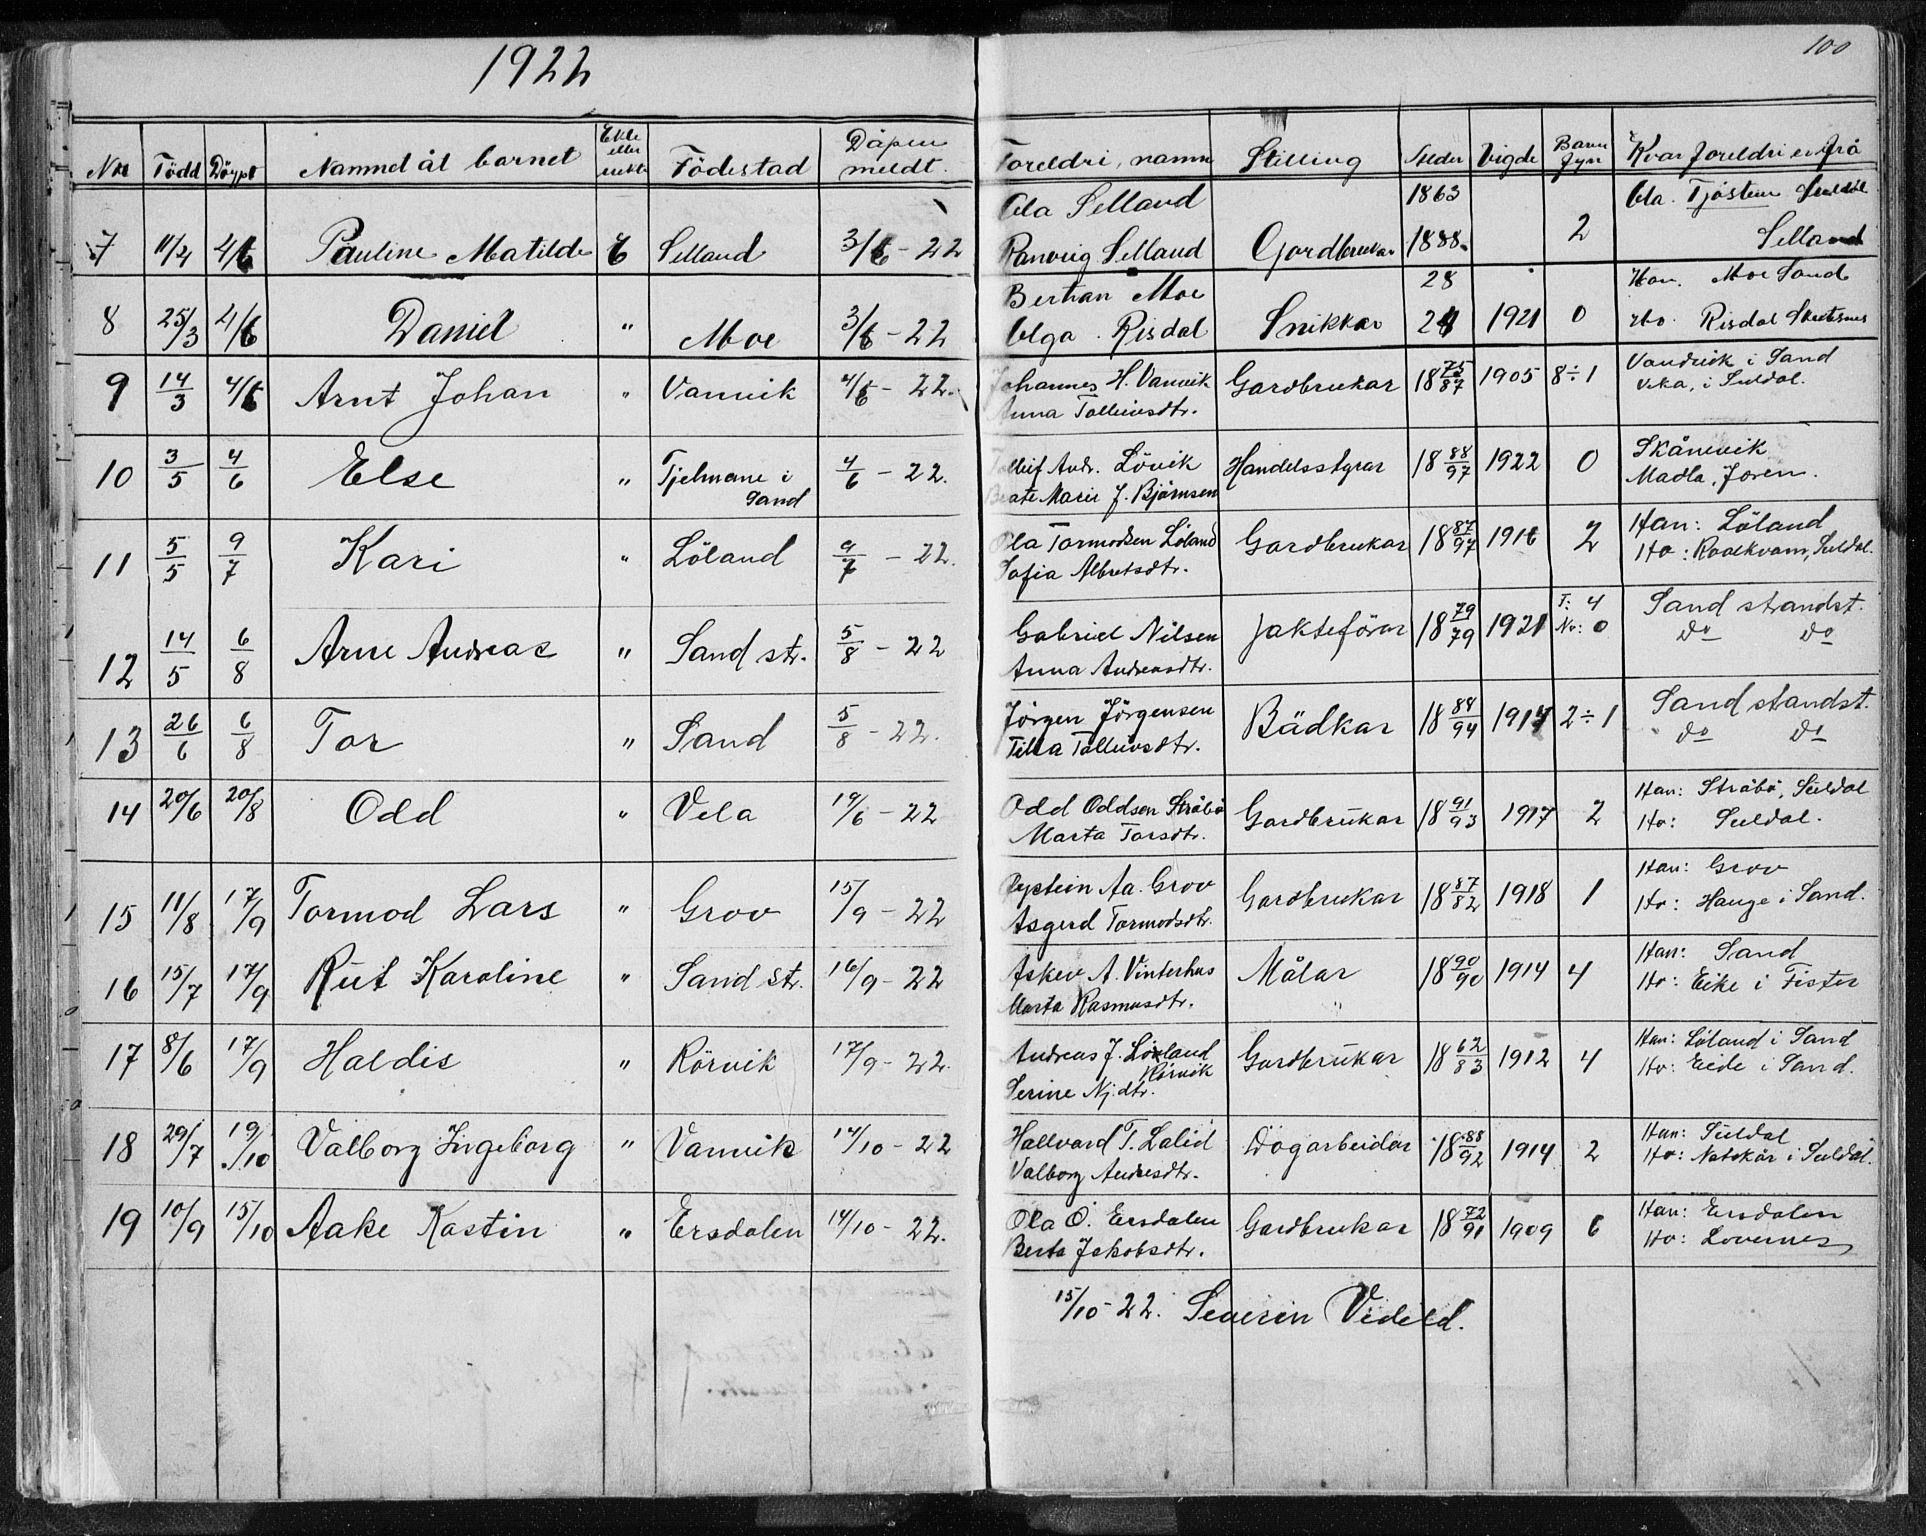 1922
100
No Född Döypt Namned åt barnet Ekte eller uekte Födestad Dåpen meldt. Foreldri, namn Stilling Alder Vigde Barn fyrr Kvar foreldri er frå
7 11/4 4/6 Pauline Matilde E Selland 3/6 - 22 Ola Selland Gardbrukar 1863 2 Ola. Tjösteim Suldal
Ranveig Selland 1888. Selland
8 25/3 4/6 Daniel " Moe 3/6 - 22 Bertran Moe Snikkar 28 1921 0 Han. Moe Sand
Olga Risdal 24 Ho. Risdal
9 14/3 4/6 Arnt Johan " Vanvik 4/6 - 22. Johannes H. Vanvik Gardbrukar 18 75/87 1905 8÷1 Vandvik i Sand
Anna Tolleivsdtr. Veka, i Suldal.
10 3/5 4/6 Else " Tjelmane i Sand 4/6 - 22. Tolleif Andr. Lövik Handelsstyrar 18 88/97 1922 0 Skånevik
Beate Marie J. Björnsen Madla, Jæren.
11 5/5 9/7 Kari " Löland 9/7 - 22. Ola Tormodsen Löland Gardbrukar 18 87/97 1916 2 Han: Löland
Sofia Albretsdtr. Ho: Roalkvam, Suldal.
12 14/5 6/8 Arne Andreas " Sand str. 5/8 - 22 Gabriel Nilsen Jakteförar 18 79/79 1921 F: 4 No: 0 Sand strandst.
Anna Andreasdtr. do do
13 26/6 6/8 Tor " Sand 5/8 - 22. Jörgen Jörgensen Bädkar 18 88/94 1914 2÷1 Sand standst.
Tilla Tolleivsdtr. do do
14 20/6 20/8 Odd " Vela 19/6 - 22 Odd Oddsen Stråbö Gardbrukar 18 91/93 1917 2 Han: Stråbö, Suldal
Marta Torsdtr. Ho: Suldal.
15 11/8 17/9 Tormod Lars " Grov 15/9 - 22 Øystein Aa. Grov Gardbrukar 18 87/82 1918 1 Han: Grov
Asgerd Tormodsdtr. Ho: Hauge i Sand.
16 15/7 17/9 Rut Karoline " Sand str. 16/9 - 22 Askev A. Vinterhus Målar 18 90/90 1914 4 Han: Sand
Marta Rasmusdtr. Ho: Eike i Fister
17 8/6 17/9 Haldis " Rörvik 17/9 - 22. Andreas J. Löland Rörvik Gardbrukar 18 62/83 1912 4 Han: Löland i Sand
Serine Nj.dtr. Ho: Eide i Sand.
18 29/7 19/10 Valborg Ingeborg " Vanvik 14/10 - 22 Hallvard T. Lalid Dagarbeidar 18 88/92 1914 2 Han: Suldal
Valborg Andresdtr. Ho: Natskår i Suldal.
19 10/9 15/10 Aake Kastin " Ersdalen 14/10 - 22. Ola O. Ersdalen Gardbrukar 18 72/91 1909 6 Han: Ersdalen
Berta Jakobsdtr. Ho: Lovernes
15/10 - 22. Severin Videld.